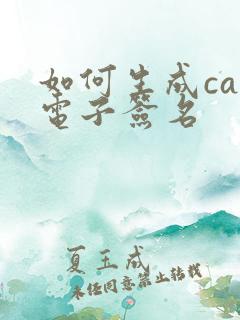 如何生成ca
電子簽名
夏玉成
未经同意禁止转载